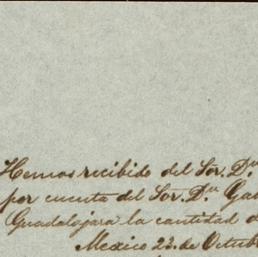 Hemos recibido del Sor. Dn
por cuenta del Sor. Dn
Guadalajara la cantidad
Mexico 23 de Octub